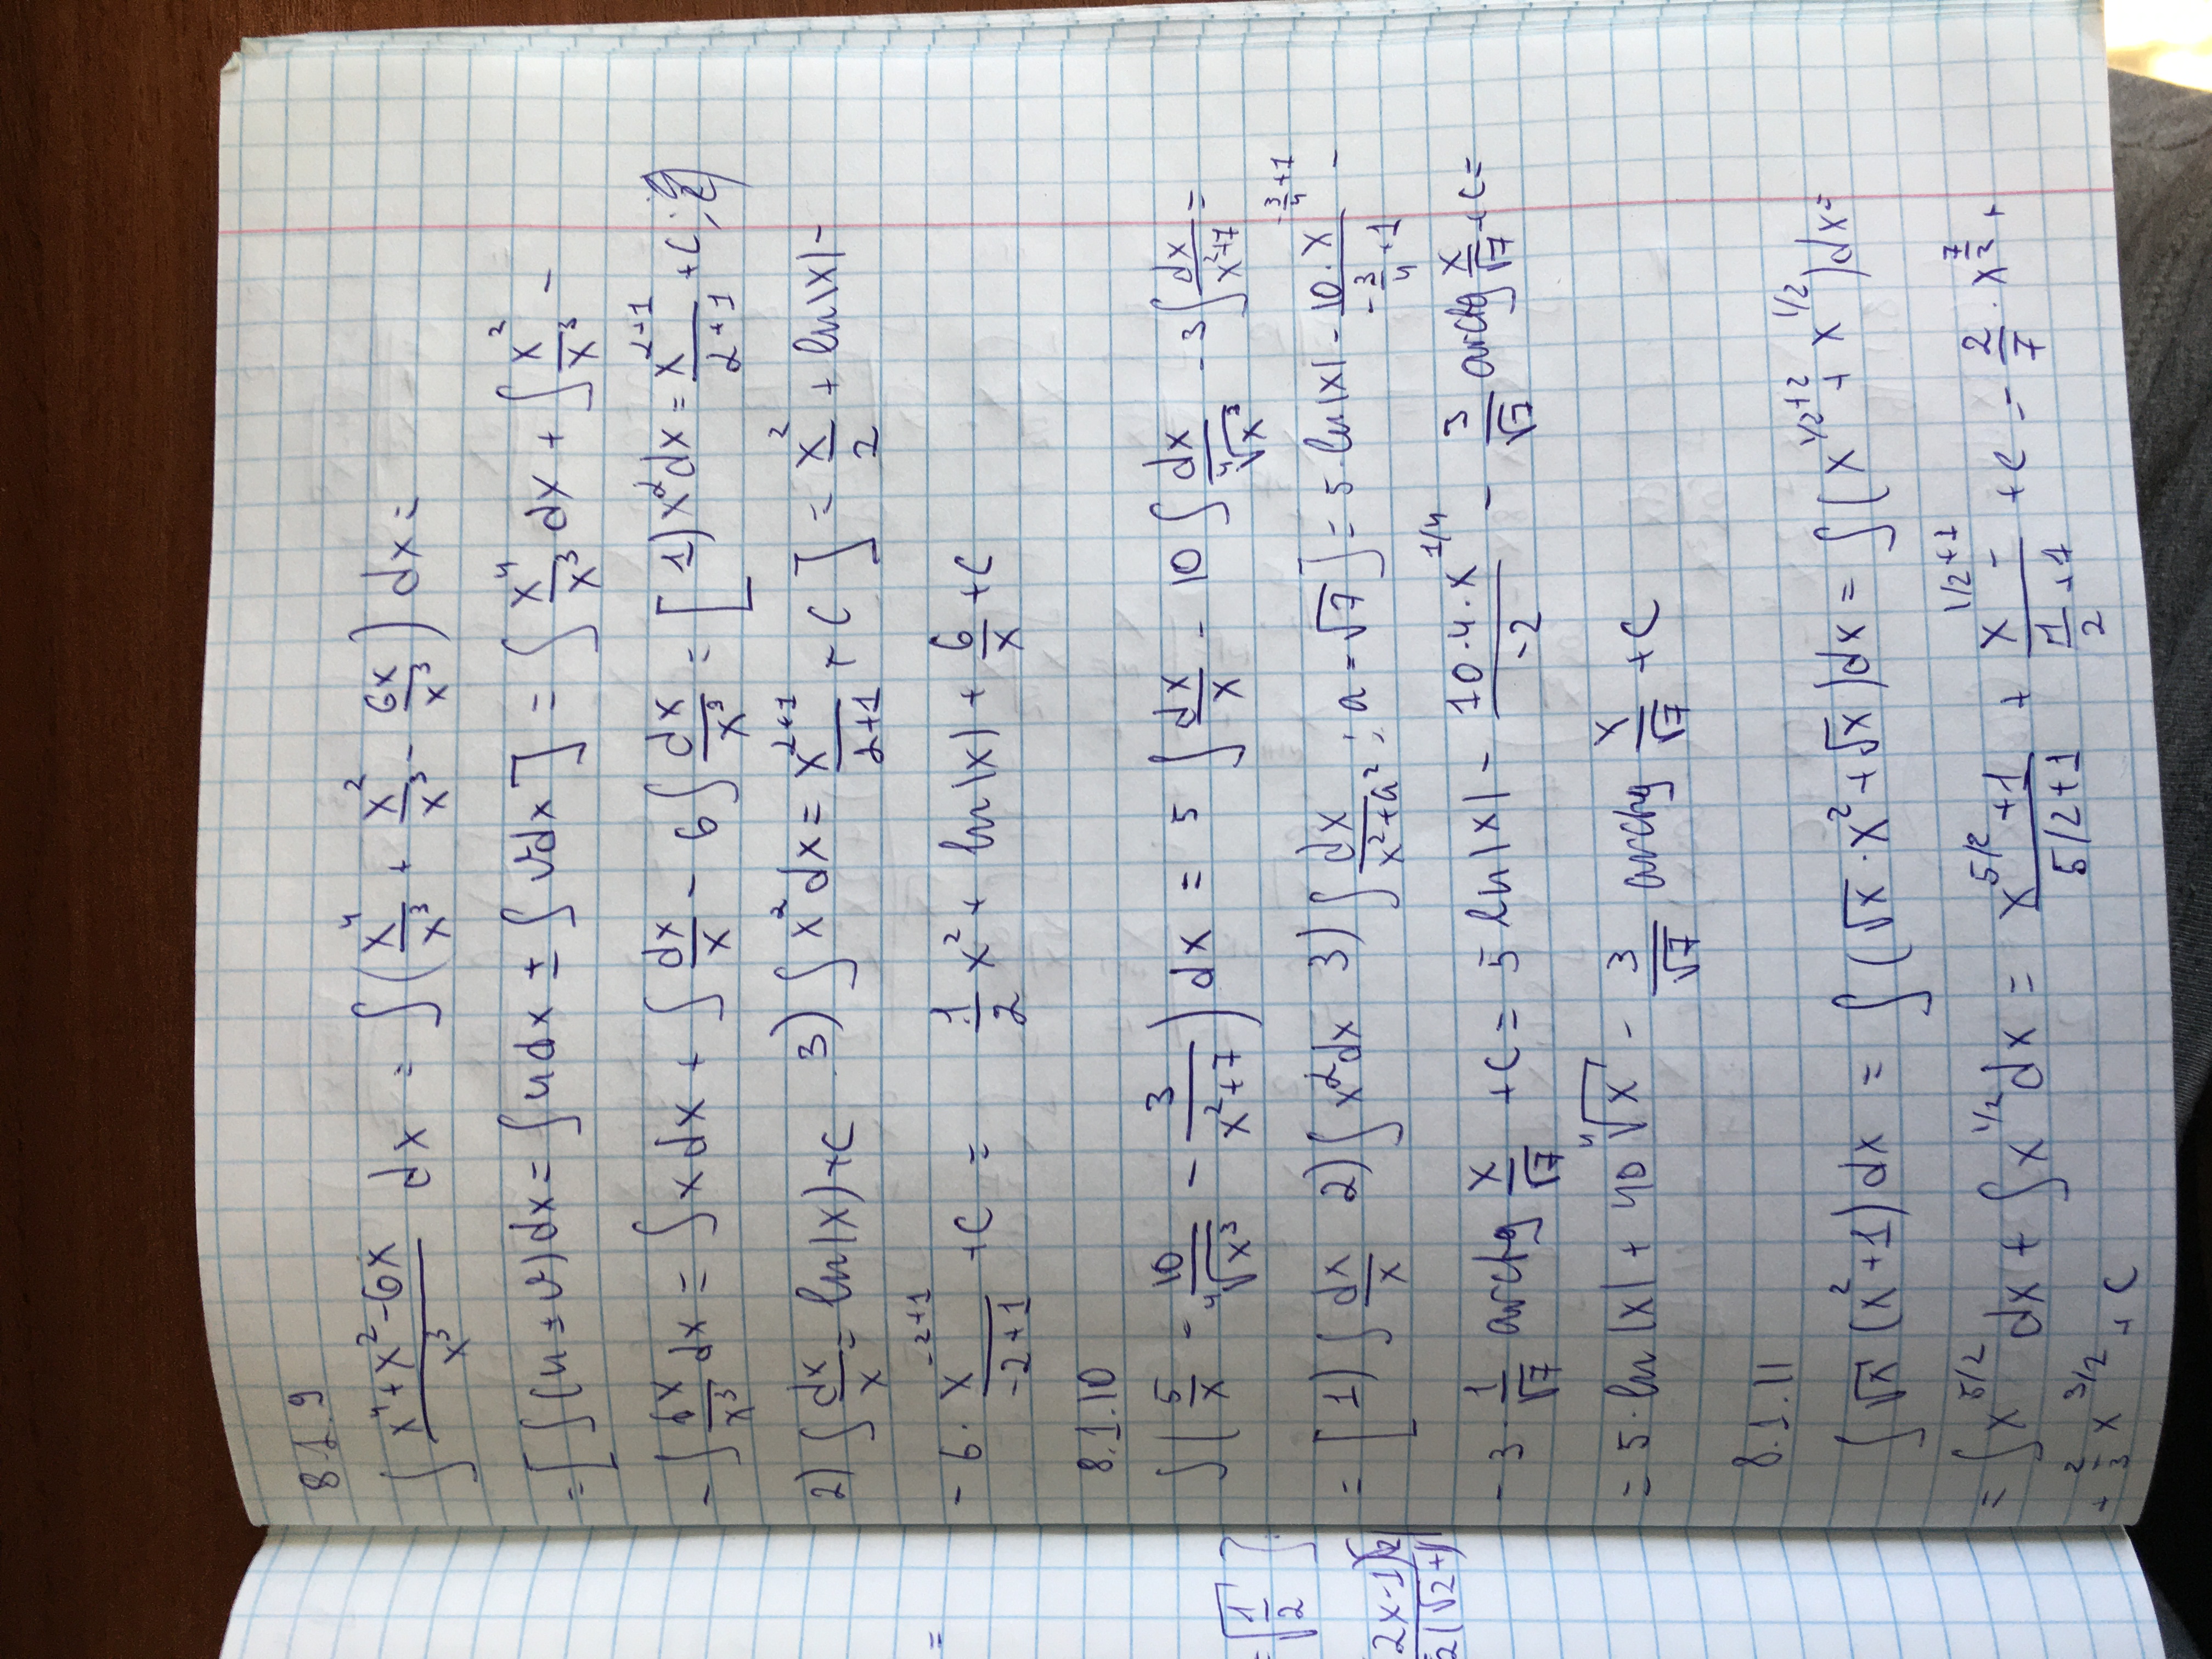 8.1.9
∫ (x⁴+x²-6x)/x³ dx = ∫(x⁴/x³ + x²/x³ - 6x/x³) dx =
= [∫(u ± v)dx = ∫udx ± ∫vdx] = ∫ x⁴/x³ dx + ∫ x²/x³ -
- ∫ 6x/x³ dx = ∫x dx + ∫ dx/x - 6∫ dx/x³ = [1) x²dx = x²⁺¹/(2+1) + C;
2) ∫ dx/x = ln|x|+C 3) ∫x²dx = x²⁺¹/(2+1) + C] = x²/2 + ln|x| -
- 6· x⁻²⁺¹/(-2+1) + C = 1/2 x² + ln|x| + 6/x + C
8.1.10
∫(5/x - 10/⁴√x³ - 3/(x²+7)) dx = 5 ∫ dx/x - 10 ∫ dx/⁴√x³ - 3∫ dx/(x²+7) =
= [1) ∫ dx/x 2) ∫x²dx 3) ∫ dx/(x²+a²); a = √7] = 5·ln|x| - 10·x^(-3/4+1)/(-3/4+1) -
- 3· 1/√7 arctg x/√7 + C = 5 ln|x| - 10·4·x^(1/4)/-2 - 3/√7 arctg x/√7 + C =
= 5·ln|x| + 40 ⁴√x - 3/√7 arctg x/√7 + C
8.1.11
∫√x (x²+1) dx = ∫(√x·x²+√x)dx = ∫(x^(1/2+2) + x^(1/2))dx =
= ∫x^(5/2) dx + ∫x^(1/2) dx = x^(5/2+1)/(5/2+1) + x^(1/2+1)/(1/2+1) + C = 2/7 · x^(7/2) +
+ 2/3 x^(3/2) + C
=
= √(1/2) ]
2x-1)√2
2(√2+1